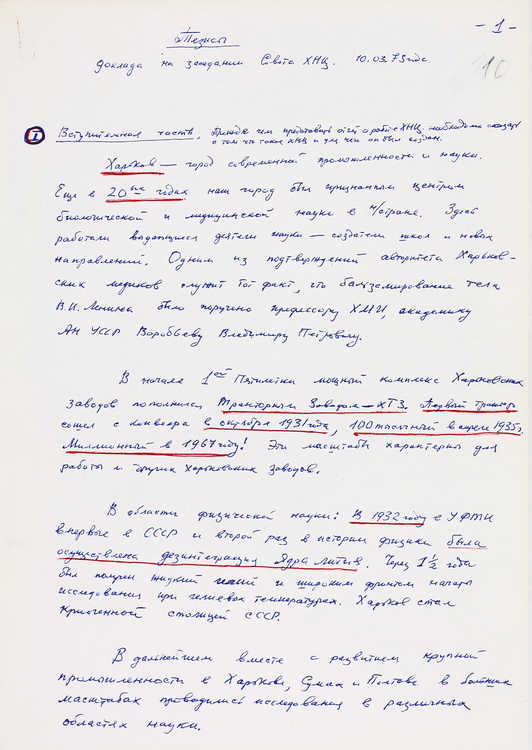 - 1 -
10
Тезисы
доклада на заседании Совета ХНЦ. 10.03.75 года.
I Вступительная часть. Прежде чем представить отчёт о работе ХНЦ необходимо сказать
о том что такое ХНЦ и для чего он был создан.
Харьков — город современной промышленности и науки.
Еще в 20ых годах наш город был признанным центром
биологической и медицинской науки в н/стране. Здесь
работали выдающиеся деятели науки — создатели школ и новых
направлений. Одним из подтверждений авторитета Харьков-
ских медиков служит тот факт, что бальземирование тела
В.И. Ленина было поручено профессору ХМИ, академику
АН УССР Воробьеву Владимиру Петровичу.
В начале 1ой Пятилетки мощный комплекс Харьковских
заводов пополнился Тракторным Заводом — ХТЗ. Первый трактор
сошел с конвеера в октябре 1931 года, 100 тысячный в апреле 1935,
Миллионный в 1967 году! Эти масштабы характерны для
работы и других Харьковских заводов.
В области физической науки: В 1932 году в УФТИ
впервые в СССР и второй раз в истории физики была
осуществлена дезинтеграция Ядра лития. Через 1 1/2 года
был получен жидкий гелий и широким фронтом начаты
исследования при гелиевых температурах. Харьков стал
криогенной столицей СССР.
В дальнейшем вместе с развитием крупной
промышленности в Харькове, Сумах и Полтаве в больших
масштабах проводились исследования в различных
областях науки.